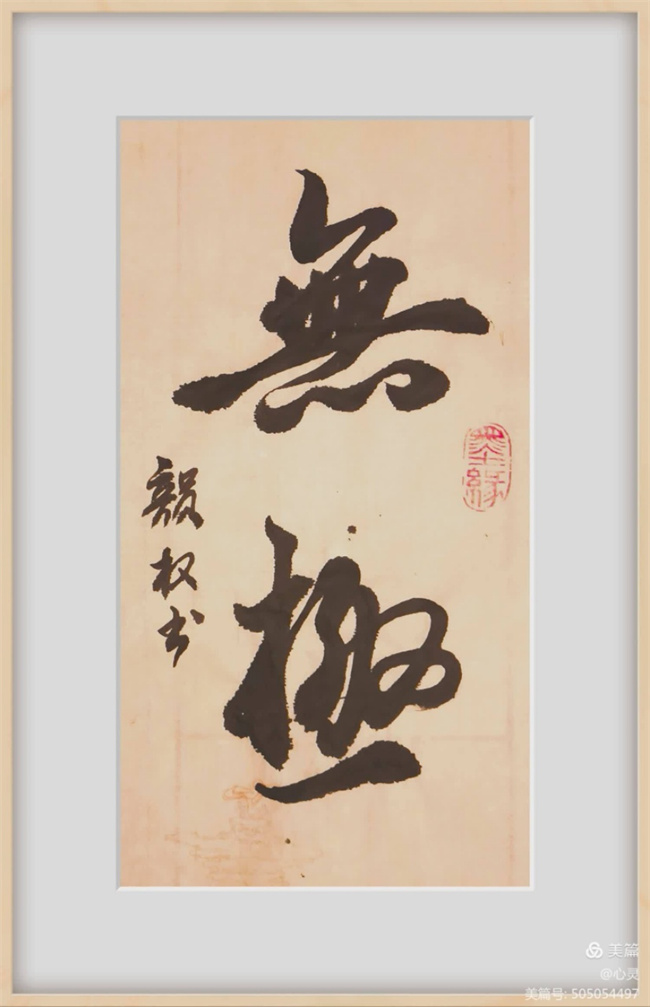 無極
权书
墨緣
美篇
@心灵
美篇号: 505054497